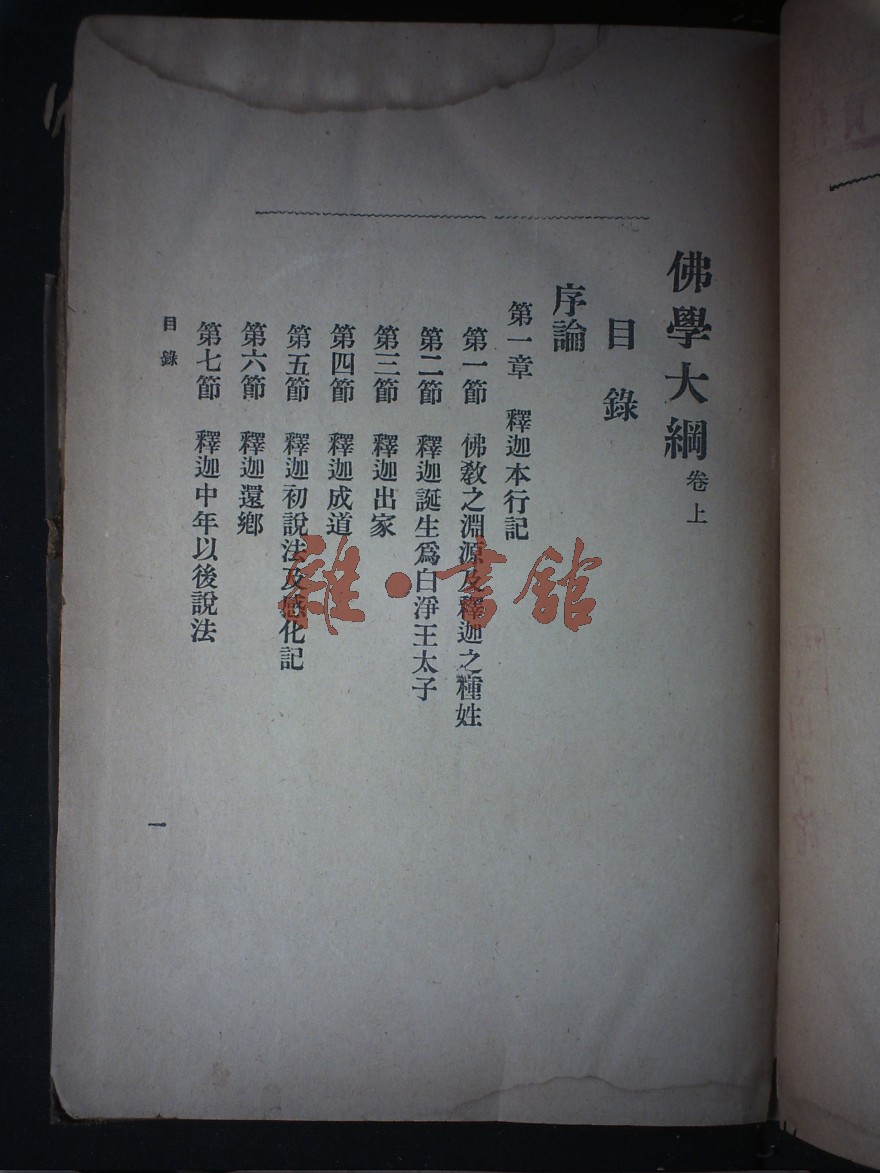 佛學大綱 卷上
目錄
序論
第一章 釋迦本行記
第一節 佛教之淵源及釋迦之種姓
第二節 釋迦誕生爲白淨王太子
第三節 釋迦出家
第四節 釋迦成道
第五節 釋迦初說法及感化記
第六節 釋迦還鄉
第七節 釋迦中年以後說法
目錄
一
雜·書館